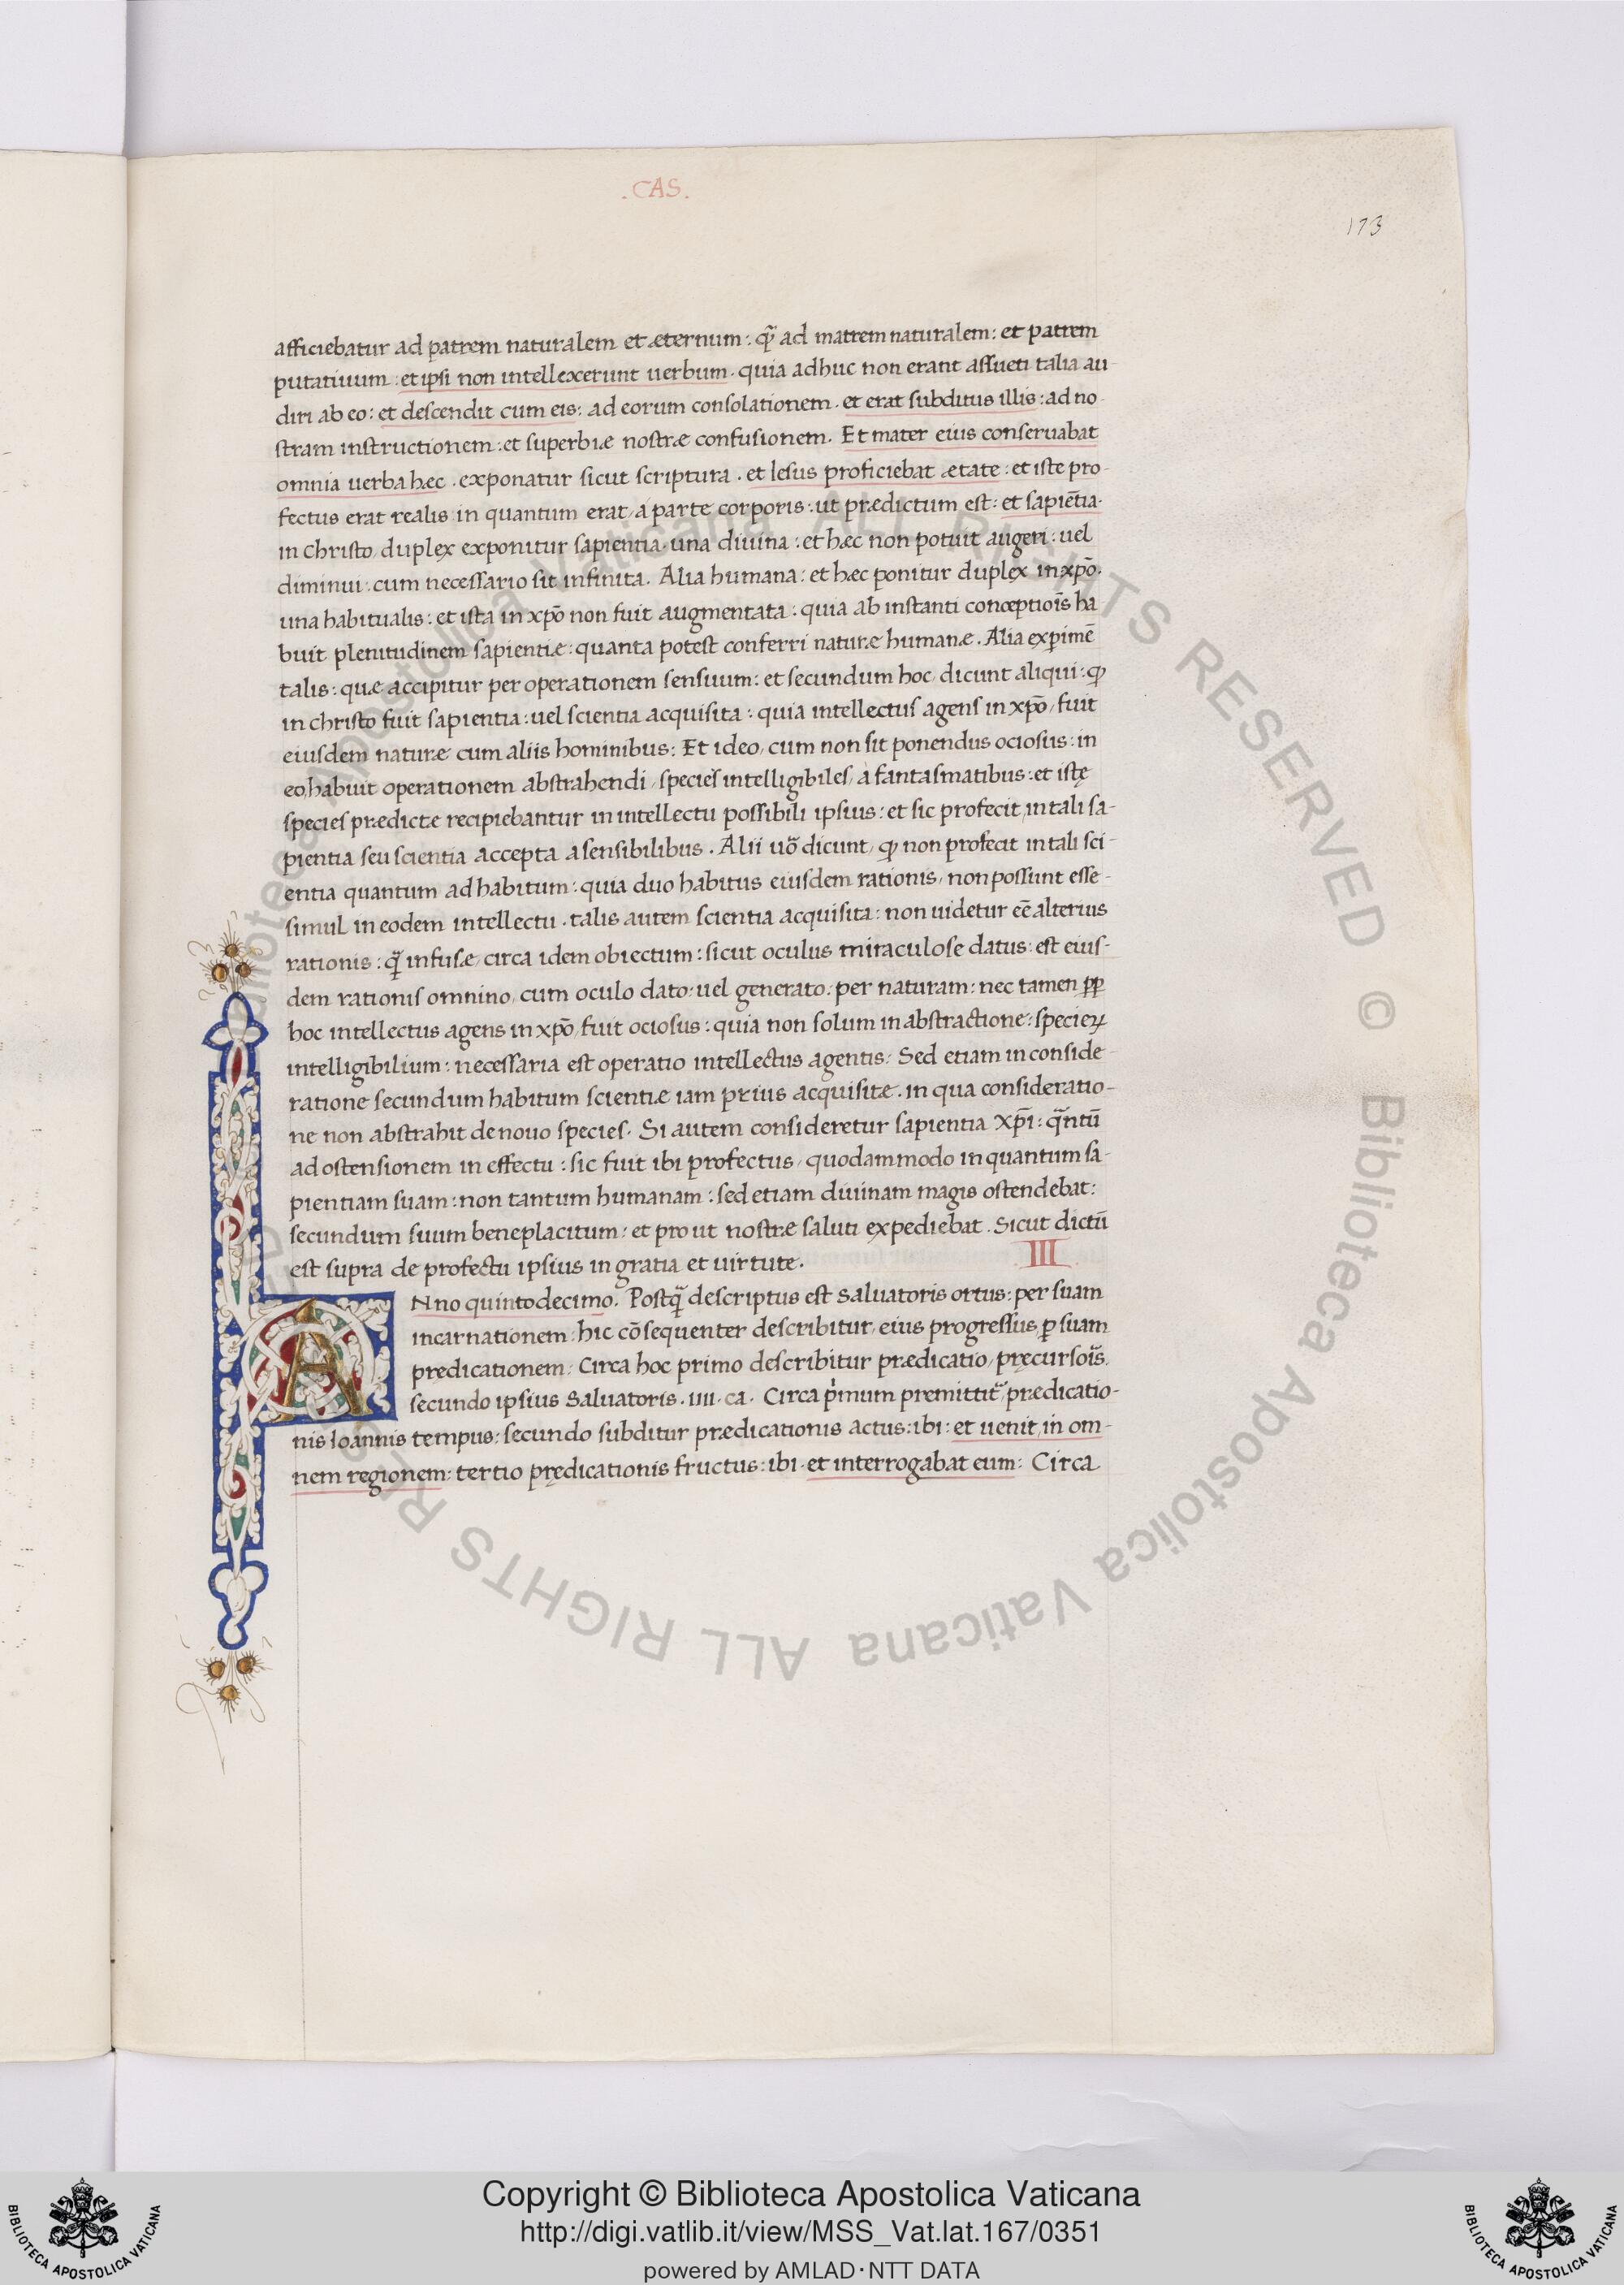 .CAS.
173
afficiebatur ad patrem naturalem et æternum: qꝫ̃ ad matrem naturalem: et patrem
putatiuum: et ipsi non intellexerunt uerbum. quia adhuc non erant assueti talia au-
diri ab eo: et descendit cum eis: ad eorum consolationem. et erat subditus illis: ad no-
stram instructionem: et superbiæ nostræ confusionem. Et mater eius conseruabat
omnia uerba hæc. exponatur sicut scriptura. et Iesus proficiebat ætate: et iste pro-
fectus erat realis in quantum erat, a parte corporis: ut prædictum est: et sapiẽtia.
in christo, duplex exponitur sapientia. una diuina: et hæc non potuit augeri: uel
diminui: cum necessario sit infinita. Alia humana: et hæc ponitur duplex in xp̃o.
una habitualis: et ista in xp̃o non fuit augmentata: quia ab instanti conceptiõis ha
buit plenitudinem sapientiæ: quanta potest conferri naturæ humanæ. Alia exꝑimẽ
talis: quæ accipitur per operationem sensuum: et secundum hoc, dicunt aliqui: ꝙ
in christo fuit sapientia: uel scientia acquisita: quia intellectus agens in xp̃o, fuit
eiusdem naturæ cum aliis hominibus: Et ideo, cum non sit ponendus ociosus: in
eo, habuit operationem abstrahendi, species intelligibiles, a fantasmatibus: et istę
species prædictæ recipiebantur in intellectu possibili ipsius: et sic profecit, in tali sa-
pientia seu scientia accepta a sensibilibus. Alii uõ dicunt, ꝙ non profecit in tali sci-
entia quantum ad habitum: quia duo habitus eiusdem rationis, non possunt esse-
simul in eodem intellectu. talis autem scientia acquisita: non uidetur eẽ alterius
rationis: q̃ infusæ, circa idem obiectum: sicut oculus miraculose datus: est eius-
dem rationis omnino, cum oculo dato: uel generato: per naturam: nec tamen ꝓꝑ
hoc intellectus agens in xp̃o, fuit ociosus: quia non solum in abstractione: specieꝝ
intelligibilium: necessaria est operatio intellectus agentis: Sed etiam in conside-
ratione secundum habitum scientiæ iam prius acquisitæ. in qua consideratio-
ne non abstrahit de nouo species. Si autem consideretur sapientia Xp̃i: q̃ntũ
ad ostensionem in effectu: sic fuit ibi profectus, quodammodo in quantum sa-
pientiam suam: non tantum humanam: sed etiam diuinam magis ostendebat:
secundum suum beneplacitum: et pro ut nostræ saluti expediebat. Sicut dictũ
est supra de profectu ipsius in gratia et uirtute.
III
ANno quintodecimo. Postq̃ descriptus est saluatoris ortus: per suam
incarnationem: hic cõsequenter describitur, eius progressus, ꝑ suam
predicationem: Circa hoc primo describitur prædicatio, pręcursoris̃.
secundo ipsius Saluatoris. iiii. ca. Circa p̃imum premittit̃, prædicatio-
nis Ioannis tempus: secundo subditur prædicationis actus: ibi: et uenit, in om-
nem regionem: tertio prędicationis fructus: ibi. et interrogabat eum: Circa
© Biblioteca Apostolica Vaticana ALL RIGHTS RESERVED
© Biblioteca Apostolica Vaticana ALL RIGHTS RESERVED
Copyright © Biblioteca Apostolica Vaticana
http://digi.vatlib.it/view/MSS_Vat.lat.167/0351
powered by AMLAD·NTT DATA
BIBLIOTECA APOSTOLICA VATICANA
BIBLIOTECA APOSTOLICA VATICANA